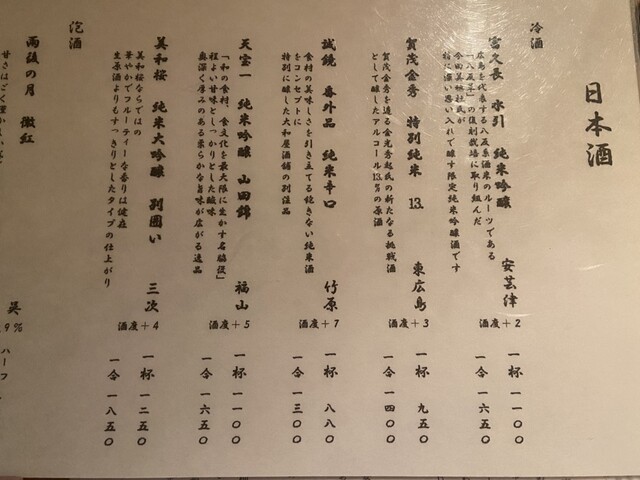 日本酒
冷酒
富久長 水引 純米吟醸 安芸津
広島を代表する八反系酒米のルーツである
「八反草」の復刻栽培に取り組んだ
今田美穂杜氏が
格に深い思い入れで醸す限定純米吟醸酒です
酒度+2 一杯 一一〇〇
一合 一六五〇
賀茂金秀 特別純米 13 東広島
賀茂金秀を造る金光秀起氏の新たなる挑戦酒
として醸したアルコール13%の原酒
酒度+3 一杯 九五〇
一合 一四〇〇
誠鏡 番外品 純米辛口 竹原
食材の美味しさを引き立てる飽きない純米酒
をコンセプトに
特別に醸した大和屋酒舗の別注品
酒度+7 一杯 八八〇
一合 一三〇〇
天宝一 純米吟醸 山田錦 福山
「和の食材、食文化を最大限に生かす名脇役」
程よい甘味としっかりとした酸味
奥深く厚みのある柔らかな旨味が広がる逸品
酒度+5 一杯 一一〇〇
一合 一六五〇
美和桜 純米大吟醸 別囲い 三次
美和桜ならではの
華やかでフルーティーな香りは健在
生原酒よりもすっきりとしたタイプの仕上がり
酒度+4 一杯 一二五〇
一合 一八五〇
泡酒
雨後の月 微紅 呉
甘さはごく
9% ハーフ